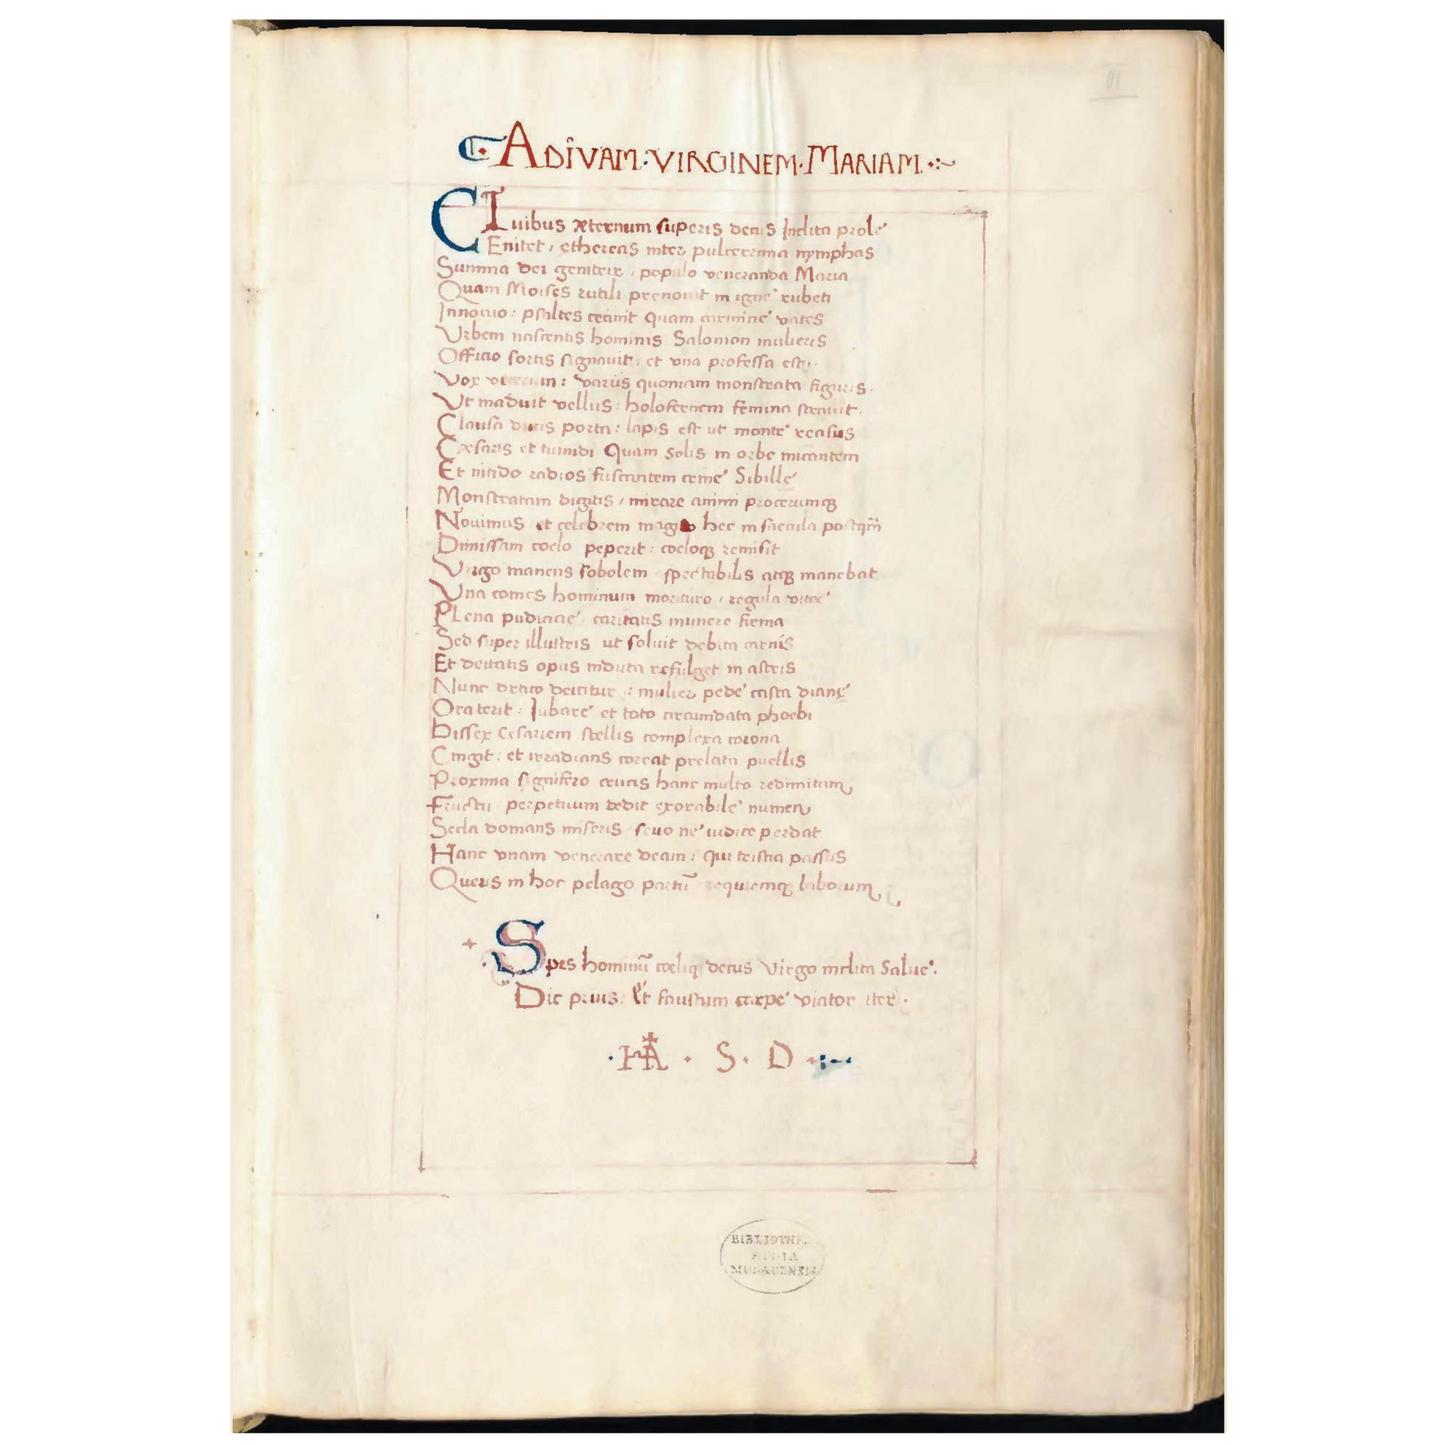 AD DIVAM · VIRGINEM · MARIAM
CIuibus æternum superis decus Inclita prole
Enitet, ethereas inter pulcerrima nymphas
Summa dei genitrix, populo veneranda Maria
Quam Moises rutili prenouit in igne rubeti
Innocuo: psaltes cecinit Quam carmine vates
Vrbem nascentis hominis Salomon mulieris
Officio fortis signauit: et vna professa est
Vox : variis quoniam monstrata figuris.
Vt maduit vellus: holofernem femina strauit.
Clausa ducis porta: lapis est ut monte recisus
Cæsaris et tumidi Quam solis in orbe micantem
Et nitido radios fuscantem crine Sibille
Monstratam digitis, mirare animi procerumq
Nouimus et celebrem magis hec in saecula postqm̃
Dimissam coelo peperit: coeloq remisit
Virgo manens sobolem spectabilis atq manebat
Vna comes hominum morituro, regula vitae
PLena pudicicie caritatis munere firma
Sed super illustris ut soluit debita carnis
Et deitatis opus induta refulget in astris
Nunc draco deicitur : mulier pede casta dianę
Ora terit: Iubare et toto circumdata phoebi
Bissex Cesariem stellis complexa corona
Cingit: et irradians coreat prelata puellis
Proxima signifero crucis hanc multo redimitam
Fructu perpetuum dedit exorabile numen
Secla domans miseris seuo ne iudice perdat
Hanc vnam venerare deam: qui tristia passus
Queris in hoc pelago portū requiemq laborum
Spes hominū coeliq decus Virgo inclita Salue.
Dic prius: Et faustum carpe viator iter.
· HA · S · D
BIBLIOTHE
REGIA
MONACENSIS